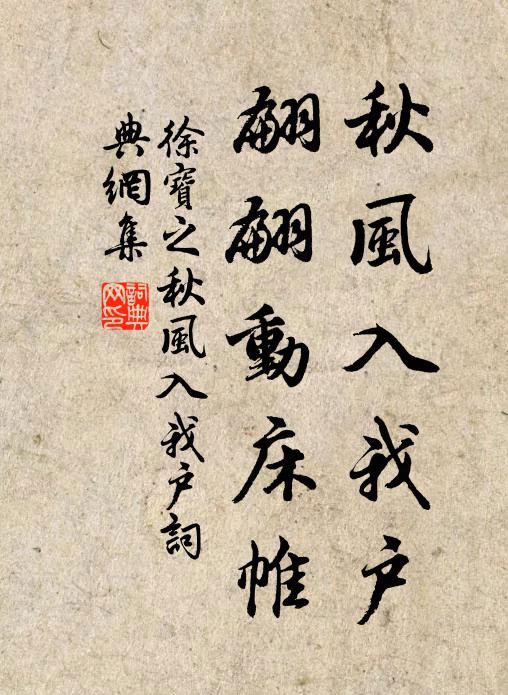 秋風入我户
翩翩動床帷
徐寶之秋風入我户詞
典網集
詞典网印